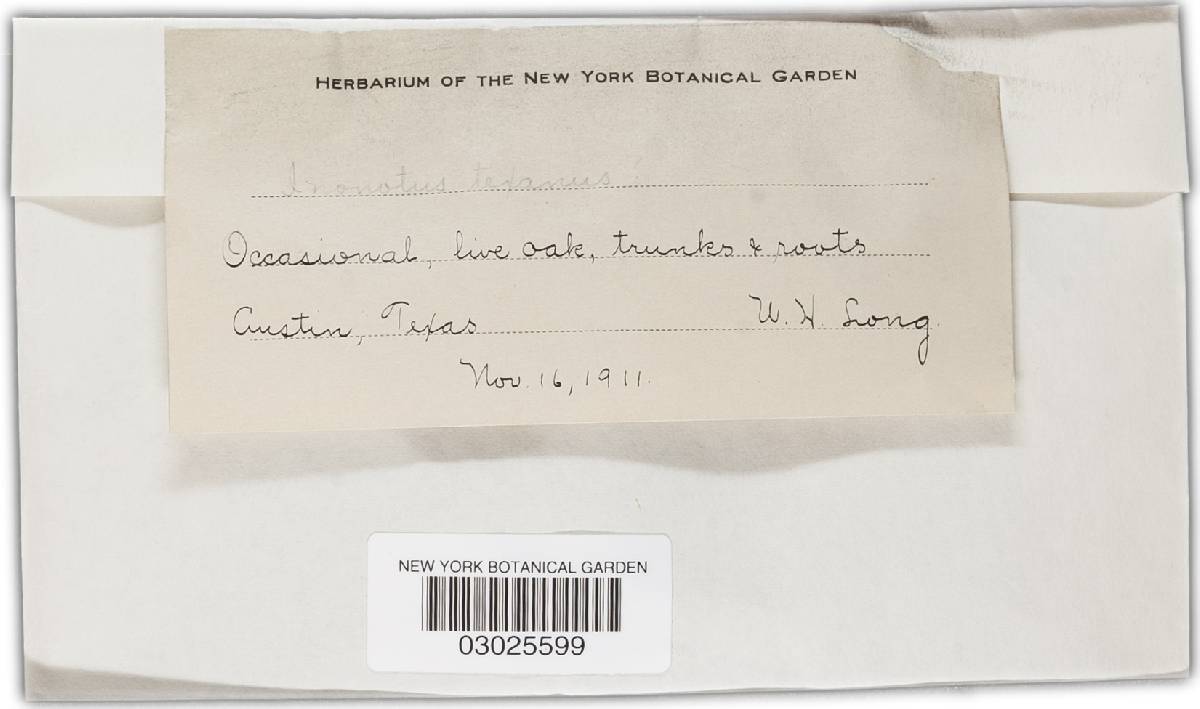 HERBARIUM OF THE NEW YORK BOTANICAL GARDEN
Inonotus texanus
Occasional, live oak, trunks & roots
Austin, Texas W. H. Long.
Nov. 16, 1911.
NEW YORK BOTANICAL GARDEN
03025599